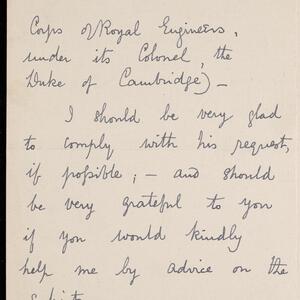 Corps of Royal Engineers,
under its Colonel, the
Duke of Cambridge) —
I should be very glad
to comply with his request,
if possible; — and should
be very grateful to you
if you would kindly
help me by advice on the